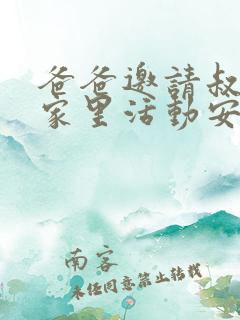 爸爸邀請叔
家里活動安
南客
未经同意禁止转载